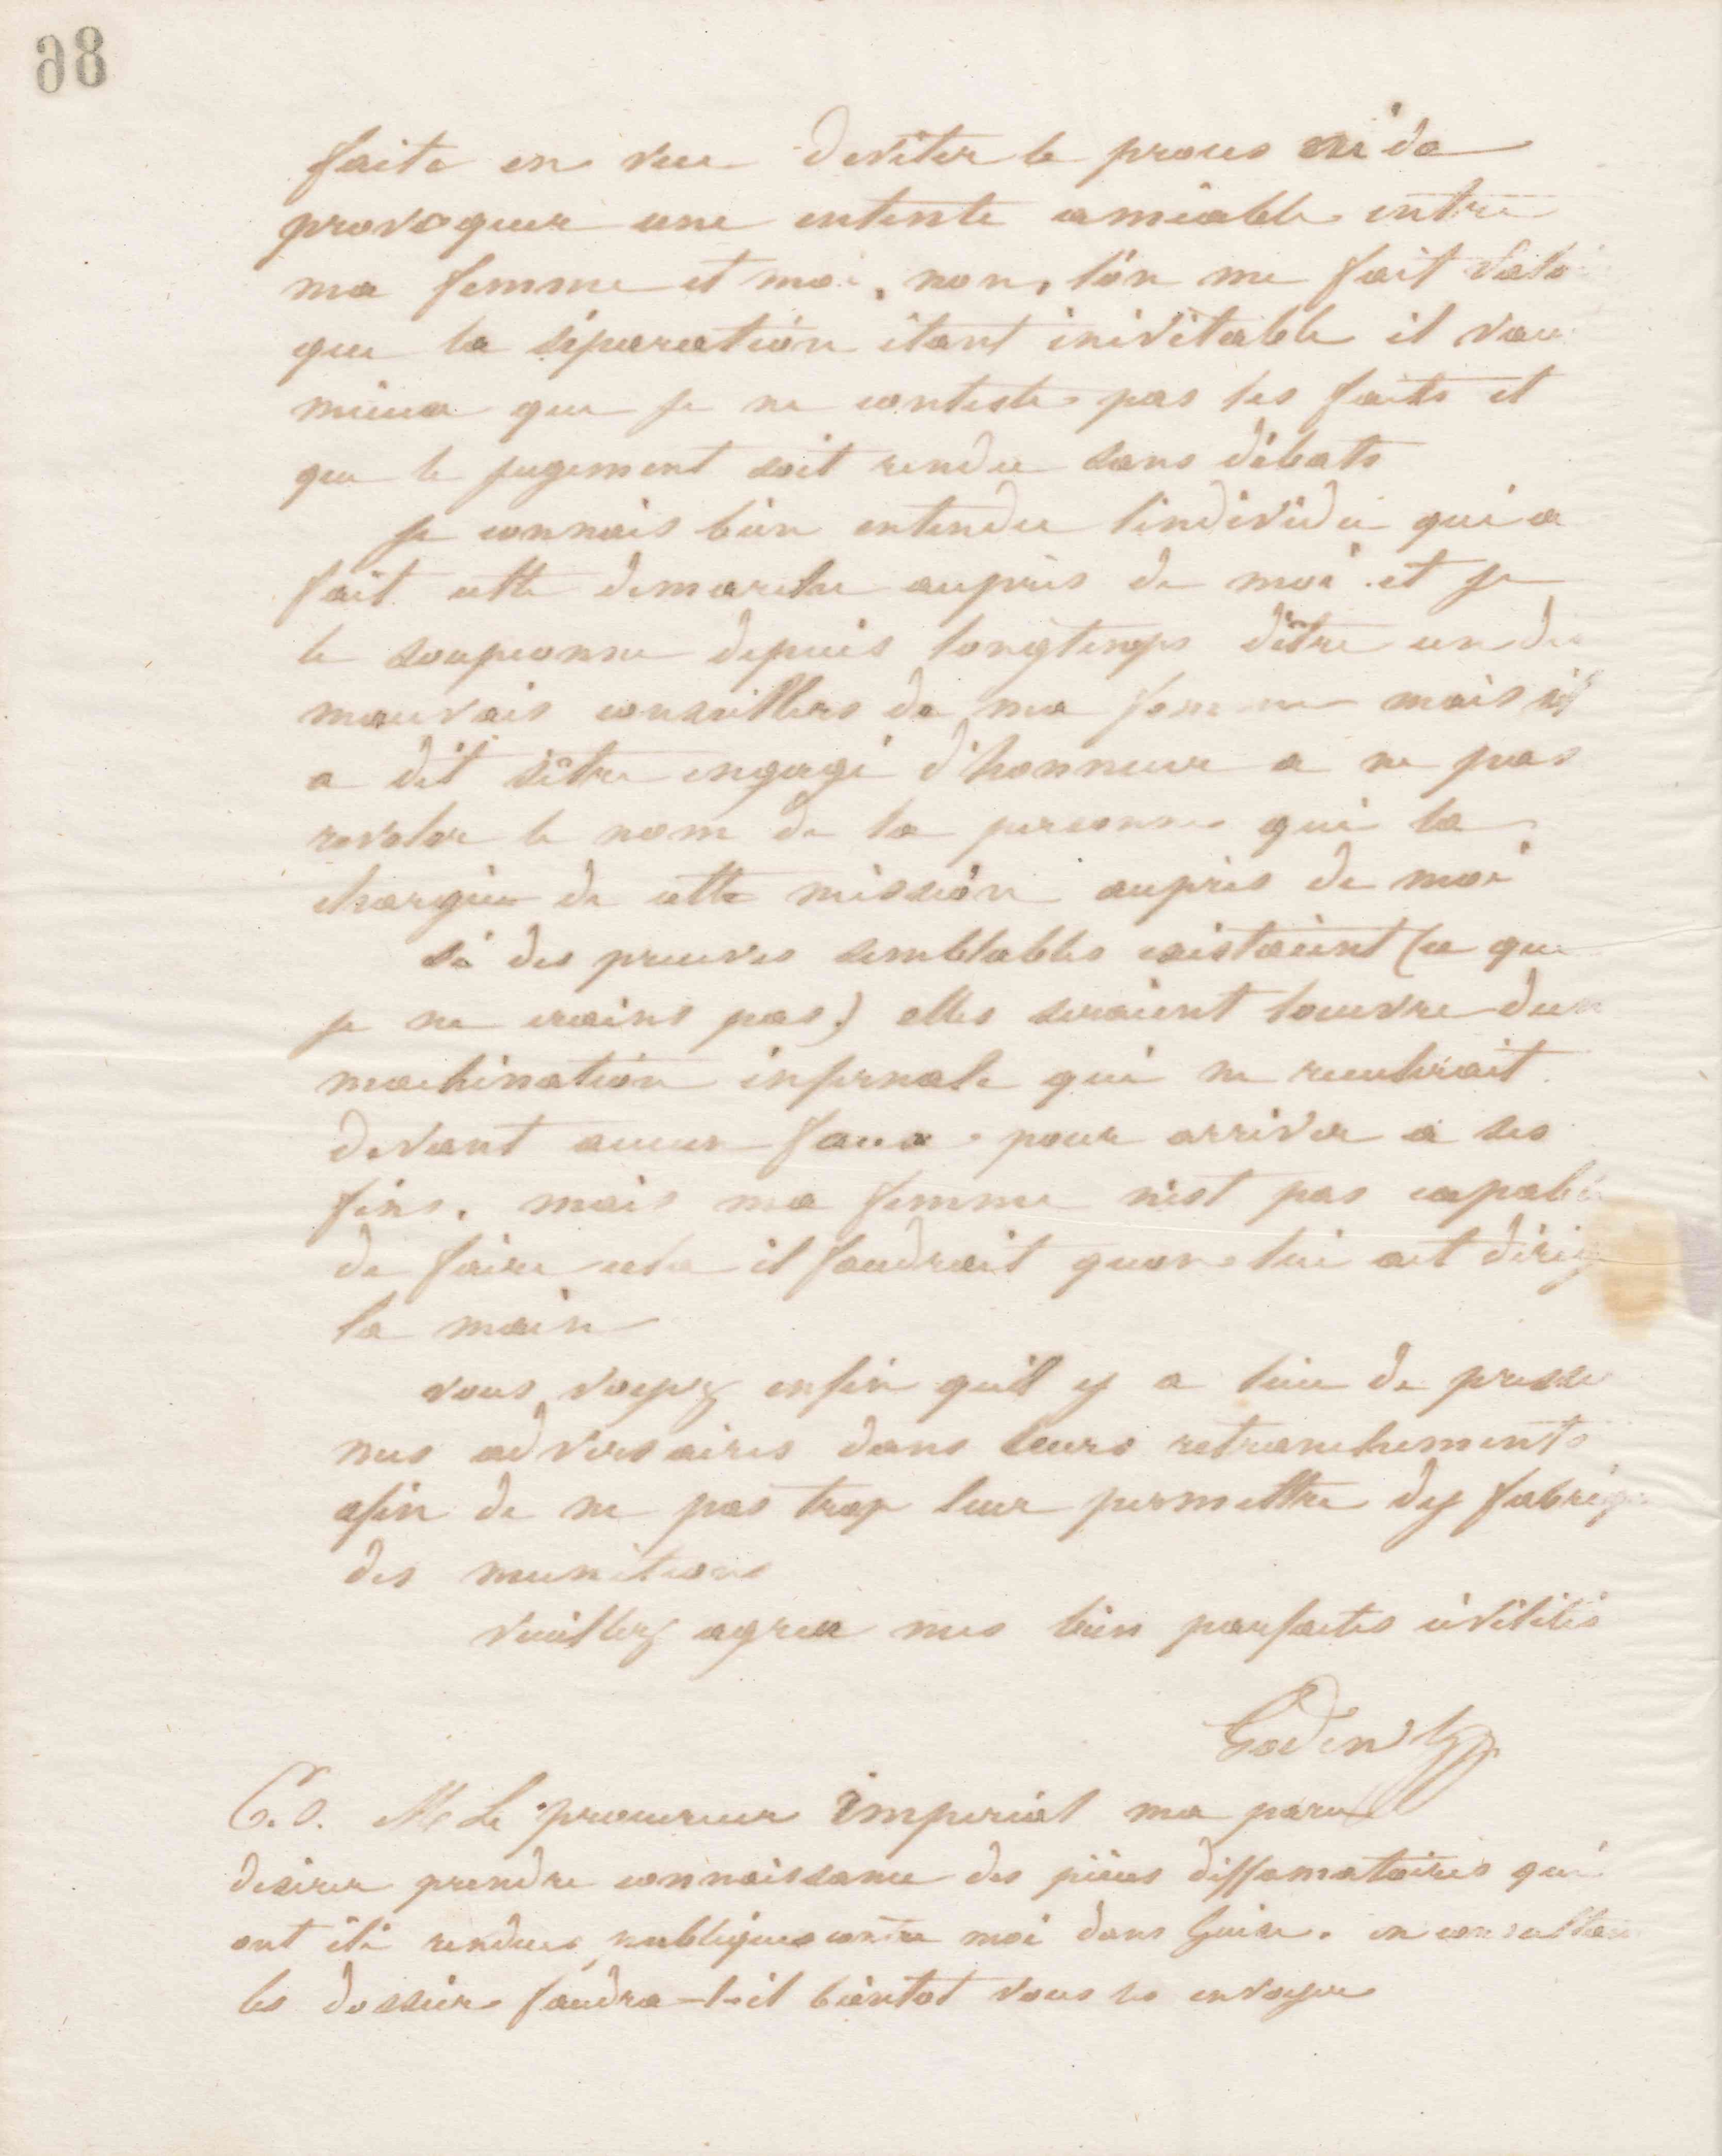 98
faite en vue deviter le proces ni de
provoquer une entente amiable entre
ma femme et moi, non, l'on me fait valoi
que la séparation étant inévitable il vau
mieux que je ne conteste pas les faits et
que le jugement soit rendu sans débats
je connais bien entendu lindividu qui a
fait cette demarche auprès de moi et je
le soupconne depuis longtemps d'être un des
mauvais conseillers de ma femme mais il
a dit s'être engagé d'honneur a ne pas
reveler le nom de la personne qui la
chargée de cette mission auprès de moi
si des preuves semblables existaient (ce que
je ne crains pas) elles seraient louvre dun
machination infernale qui ne reculerait
devant aucun faux pour arriver a ses
fins. mais ma femme n'est pas capable
de faire cela il faudrait quon lui ait dirig
la main
vous voyez enfin quil y a lieu de presser
nos adversaires dans leurs retranchements
afin de ne pas trop leur permettre dy fabriq
des munitions
veuillez agreer mes bien parfaites civilités
Godin
P.S. Mr Le procureur imperial ma paru
desirer prendre connaissance des pièces diffamatoires qui
ont été rendues publiques contre moi dans Guise. en consultant
les dossiers faudra-t-il bientot vous les envoyer